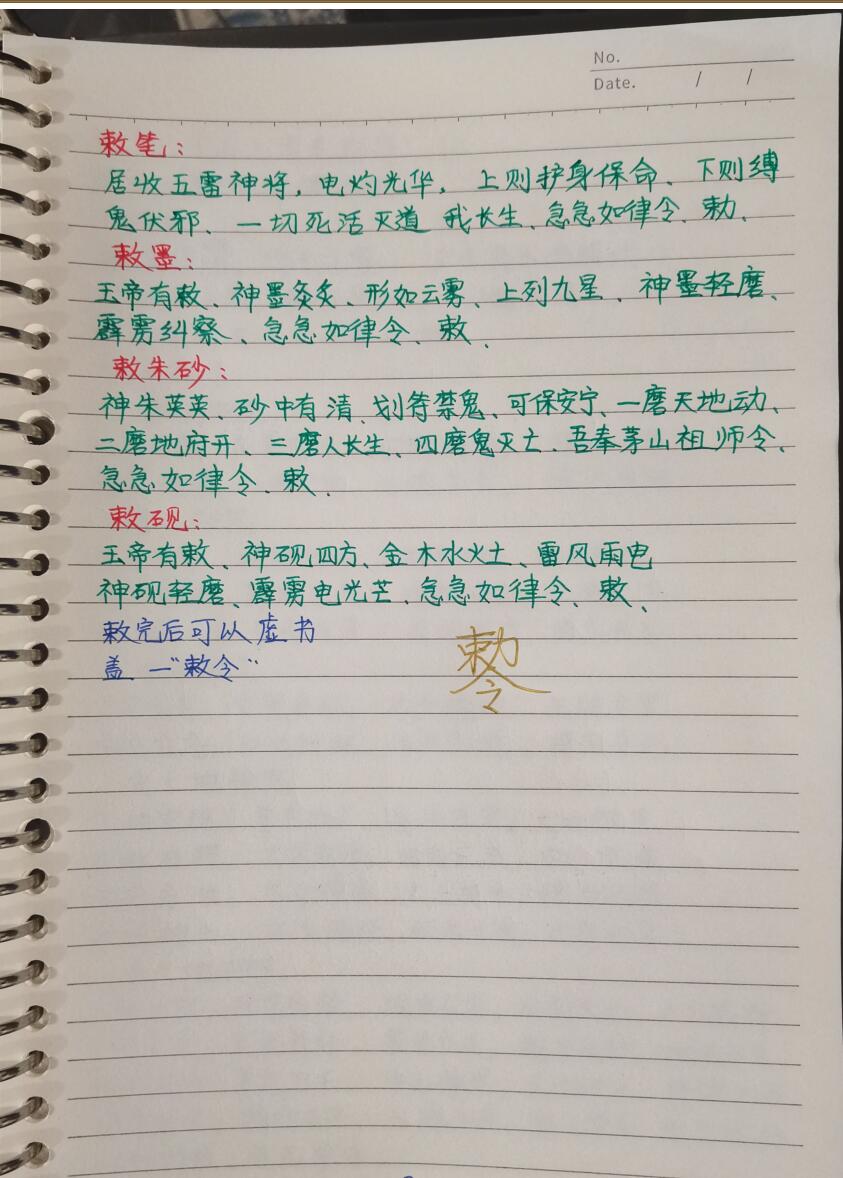 No.
Date. / /
敕笔：
居收五雷神将，电灼光华，上则护身保命、下则缚
鬼伏邪、一切死活灭道 我长生、急急如律令、勅、
敕墨：
玉帝有敕、神墨灸炙、形如云雾、上列九星、神墨轻磨、
霹雳纠察、急急如律令、敕、
敕朱砂：
神朱英英、砂中有清、划符禁鬼、可保安宁、一磨天地动、
二磨地府开、三磨人长生、四磨鬼灭亡、吾奉茅山祖师令、
急急如律令、敕、
敕砚：
玉帝有敕、神砚四方、金木水火土、雷风雨电
神砚轻磨、霹雳电光芒、急急如律令、敕、
敕完后可以虚书
盖一"敕令"
勅
令